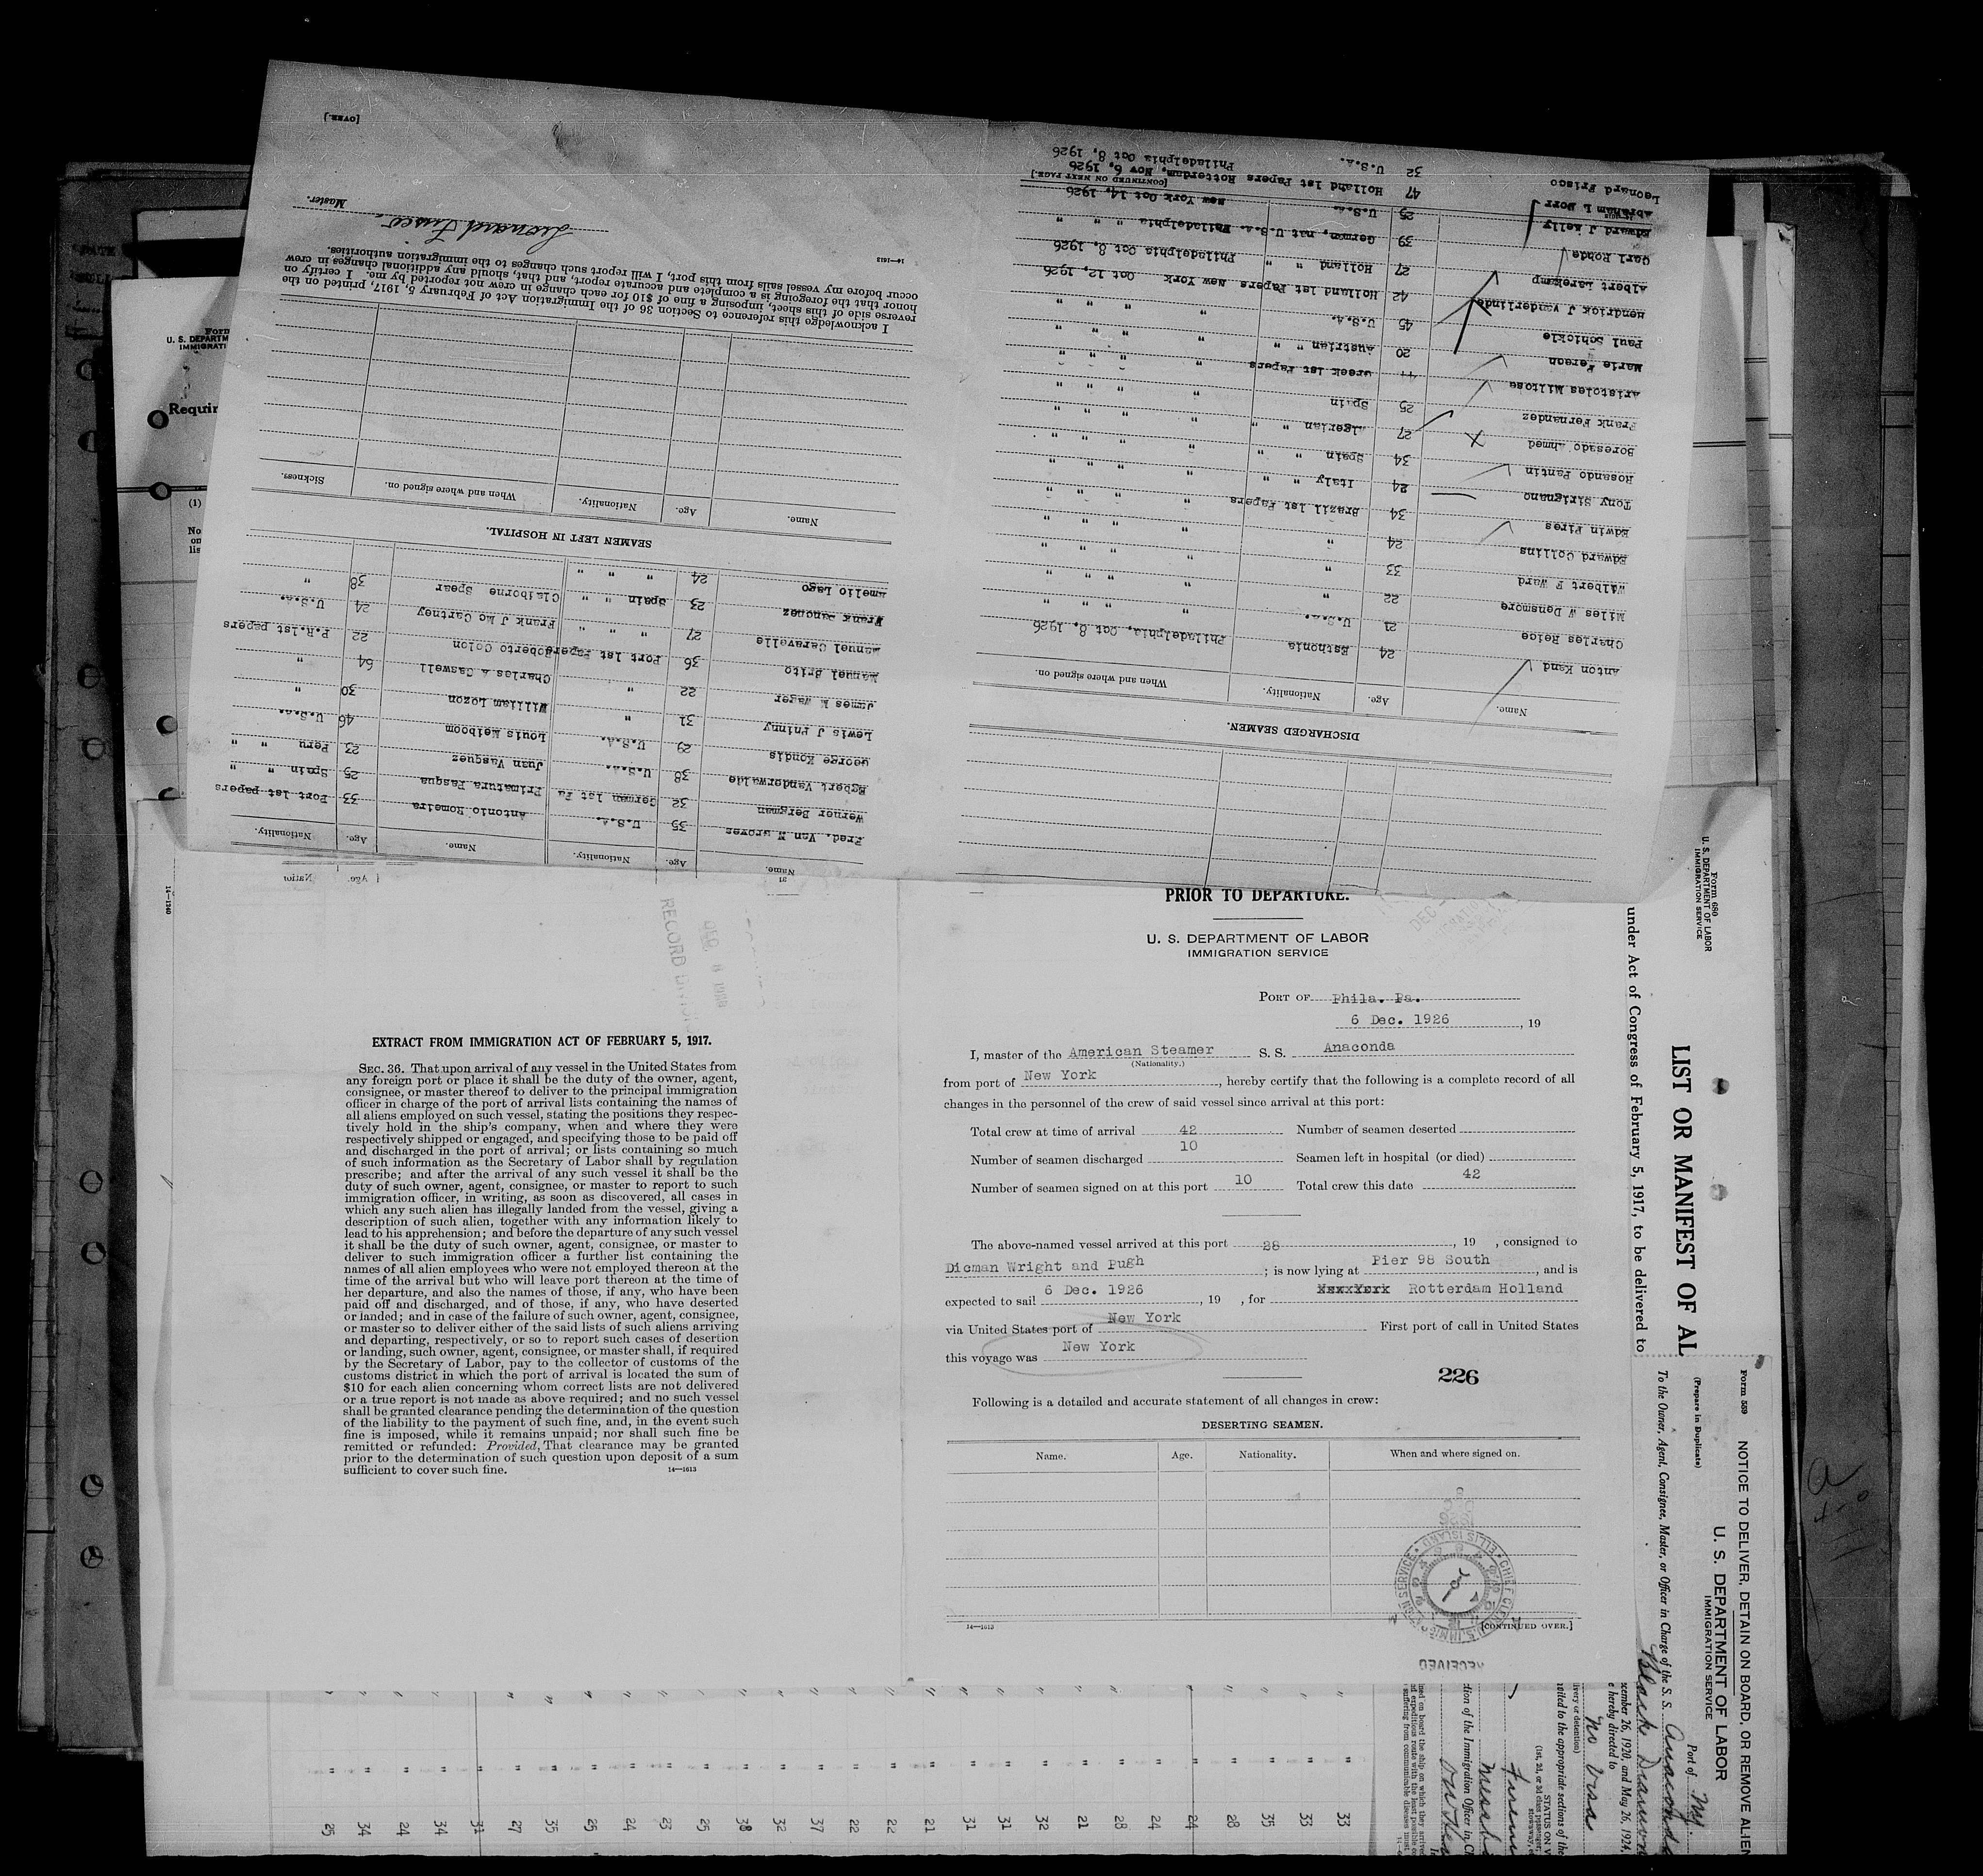 [OVER.]
Leonard Frisco Master.
14-1613
I acknowledge this reference to Section 36 of the Immigration Act of February 5, 1917, printed on the
reverse side of this sheet, imposing a fine of $10 for each change in crew not reported by me. I certify on
honor that the foregoing is a complete and accurate report, and that, should any additional changes in crew
occur before my vessel sails from this port, I will report such changes to the immigration authorities.
Name. Age. Nationality. When and where signed on. Sickness.
SEAMEN LEFT IN HOSPITAL.
Name. Age. Nationality. Name. Age. Nationality.
Fred. Van N Groves 35 U.S.A. Antonio Romeira 33 Port 1st papers
Werner Bergman 32 German 1st Pa Primatura Pasqua 25 Spain " "
Egbert Vanderwalde 38 U.S.A. Juan Vasquez 23 Peru " "
George Kondis 29 U.S.A. Louis Meiboom 46 U.S.A.
Lewis J Phinny 31 " William Lozon 30 "
James M Wager 22 " Charles A Caswell 64 "
Manuel Brito 36 Port 1st Papers Roberto Colon 22 P.R.1st papers
Manuel Caravelle 27 " " " Frank J Mc Cartney 24 U.S.A.
Frank Sanquez 23 Spain " " Claiborne Spear 38 "
Amelio Lago 24 " " "
DISCHARGED SEAMEN.
Name. Age. Nationality. When and where signed on.
Anton Kand 24 Esthonia Philadelphia, Oct 8, 1926
Charles Reice 21 U.S.A. " " " "
Miles W Densmore 22 " " " " "
Wilbert F Ward 33 " " " " "
Edward Collins 24 " " " " "
Edwin Pires 34 Brazil 1st Papers " " " "
Tony Sirignano 24 Italy " " " " " "
Rosando Pantin 34 Spain " " " " " "
Boresado Ahmed 27 Algerian " " " " " "
Frank Fernandez 25 Spain " " " "
Aristoles Miltose 44 Greek 1st Papers " " " "
Marie Ferson 20 Austrian " " " " " "
Paul Schickle 45 U.S.A. " " " "
Hendrick J Vanderlinde 42 Holland 1st Papers New York Oct 12, 1926
Albert Larekamp 27 Holland " " Philadelphia Oct 8, 1926
Carl Rohde 39 German, nat U.S.A. Philadelphia " " "
Edward J Kelly 25 U.S.A. New York Oct 14, 1926
[CONTINUED ON NEXT PAGE.]
Abraham L Dorr 47 Holland 1st Papers Rotterdam, Nov 6, 1926
Leonard Frisco 32 U.S.A. Philadelphia Oct 8, 1926
Form
U. S. DEPARTM
IMMIGRATI
Requir
(1)
No
on
lis
14-1240
EXTRACT FROM IMMIGRATION ACT OF FEBRUARY 5, 1917.
SEC. 36. That upon arrival of any vessel in the United States from
any foreign port or place it shall be the duty of the owner, agent,
consignee, or master thereof to deliver to the principal immigration
officer in charge of the port of arrival lists containing the names of
all aliens employed on such vessel, stating the positions they respec-
tively hold in the ship's company, when and where they were
respectively shipped or engaged, and specifying those to be paid off
and discharged in the port of arrival; or lists containing so much
of such information as the Secretary of Labor shall by regulation
prescribe; and after the arrival of any such vessel it shall be the
duty of such owner, agent, consignee, or master to report to such
immigration officer, in writing, as soon as discovered, all cases in
which any such alien has illegally landed from the vessel, giving a
description of such alien, together with any information likely to
lead to his apprehension; and before the departure of any such vessel
it shall be the duty of such owner, agent, consignee, or master to
deliver to such immigration officer a further list containing the
names of all alien employees who were not employed thereon at the
time of the arrival but who will leave port thereon at the time of
her departure, and also the names of those, if any, who have been
paid off and discharged, and of those, if any, who have deserted
or landed; and in case of the failure of such owner, agent, consignee,
or master so to deliver either of the said lists of such aliens arriving
and departing, respectively, or so to report such cases of desertion
or landing, such owner, agent, consignee, or master shall, if required
by the Secretary of Labor, pay to the collector of customs of the
customs district in which the port of arrival is located the sum of
$10 for each alien concerning whom correct lists are not delivered
or a true report is not made as above required; and no such vessel
shall be granted clearance pending the determination of the question
of the liability to the payment of such fine, and, in the event such
fine is imposed, while it remains unpaid; nor shall such fine be
remitted or refunded: Provided, That clearance may be granted
prior to the determination of such question upon deposit of a sum
sufficient to cover such fine.
14-1613
RECORD DIVISION
PRIOR TO DEPARTURE.
U. S. DEPARTMENT OF LABOR
IMMIGRATION SERVICE
PORT OF Phila. Pa.
6 Dec. 1926, 19
I, master of the American Steamer S. S. Anaconda
(Nationality.)
from port of New York, hereby certify that the following is a complete record of all
changes in the personnel of the crew of said vessel since arrival at this port:
Total crew at time of arrival 42 Number of seamen deserted
Number of seamen discharged 10 Seamen left in hospital (or died)
Number of seamen signed on at this port 10 Total crew this date 42
The above-named vessel arrived at this port 28, 19 , consigned to
Dicman Wright and Pugh; is now lying at Pier 98 South, and is
expected to sail 6 Dec. 1926, 19 , for Rotterdam Holland
via United States port of New York First port of call in United States
this voyage was New York
226
Following is a detailed and accurate statement of all changes in crew:
DESERTING SEAMEN.
Name. Age. Nationality. When and where signed on.
14-1613
[CONTINUED OVER.]
RECEIVED
Form 680
U. S. DEPARTMENT OF LABOR
IMMIGRATION SERVICE
LIST OR MANIFEST OF AL
under Act of Congress of February 5, 1917, to be delivered to
Form 559
NOTICE TO DELIVER, DETAIN ON BOARD, OR REMOVE ALIEN
(Prepare in Duplicate)
U. S. DEPARTMENT OF LABOR
IMMIGRATION SERVICE
Port of NY.
To the Owner, Agent, Consignee, Master, or Officer in Charge of the S. S. Anaconda
Black Diamond
cember 26, 1920, and May 26, 1924,
e hereby directed to
No Visa
25 34 24 34 31 27 35 25 24 23 25 38 32 37 22 22 21 31 31 32 21 28 24 24 28 35 33 33